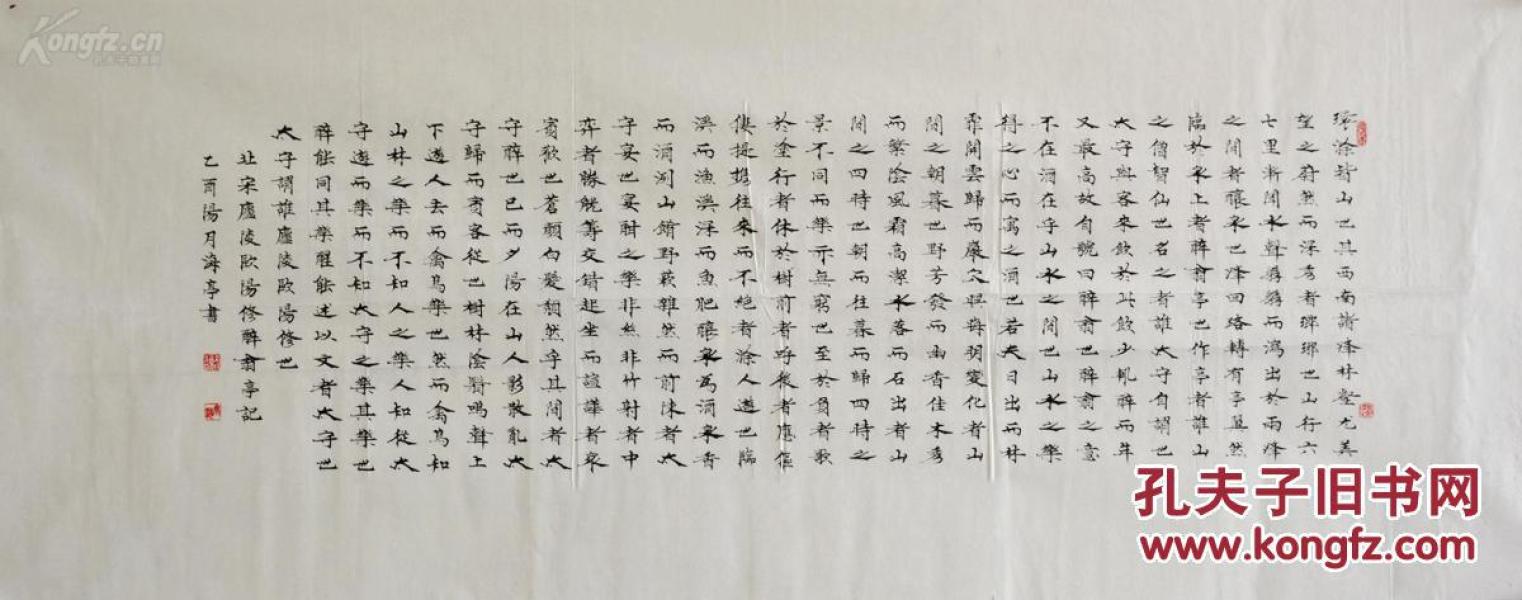 環滁皆山也其西南諸峰林壑尤美
望之蔚然而深秀者瑯琊也山行六
七里漸聞水聲潺潺而瀉出於兩峰
之間者釀泉也峰回路轉有亭翼然
臨於泉上者醉翁亭也作亭者誰山
之僧智仙也名之者誰太守自謂也
太守與客來飲於此飲少輒醉而年
又最高故自號曰醉翁也醉翁之意
不在酒在乎山水之間也山水之樂
得之心而寓之酒也若夫日出而林
霏開雲歸而巖穴暝晦明變化者山
間之朝暮也野芳發而幽香佳木秀
而繁陰風霜高潔水落而石出者山
間之四時也朝而往暮而歸四時之
景不同而樂亦無窮也至於負者歌
於塗行者休於樹前者呼後者應傴
僂提攜往來而不絕者滁人遊也臨
溪而漁溪深而魚肥釀泉為酒泉香
而酒洌山餚野蔌雜然而前陳者太
守宴也宴酣之樂非絲非竹射者中
弈者勝觥籌交錯起坐而諠譁者眾
賓歡也蒼顏白髮頹然乎其間者太
守醉也已而夕陽在山人影散亂太
守歸而賓客從也樹林陰翳鳴聲上
下遊人去而禽鳥樂也然而禽鳥知
山林之樂而不知人之樂人知從太
守遊而樂而不知太守之樂其樂也
醉能同其樂醒能述以文者太守也
太守謂誰廬陵歐陽修也
北宋廬陵歐陽修醉翁亭記
乙酉陽月海亭書
Kongfz.cn
孔夫子旧书网
孔夫子旧书网
www.kongfz.com